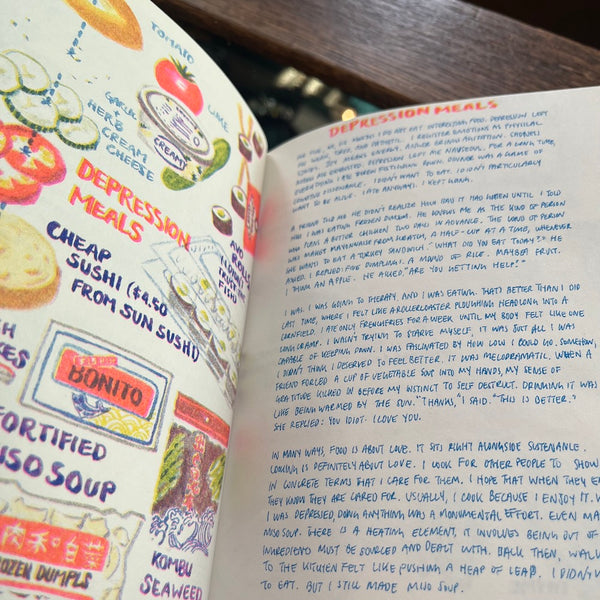 TOMATO
LIME
GARLIC +
HERB
CREAM
CHEESE
CREAMY
DEPRESSION
MEALS
CHEAP
SUSHI ($4.50
FROM SUN SUSHI)
AVO
ROLL
FISH
BONITO
FORTIFIED
MISO SOUP
肉 和 白 菜
FROZEN DUMPLS
KOMBU
SEAWEED
DEPRESSION MEALS
I DO NOT EAT INTERESTING FOOD. DEPRESSION LEFT
ME WEAK, TIRED, AND PATHETIC. I REGISTER EMOTIONS AS PHYSICAL
JOY MEANS ENERGY. ANGER BRINGS AGITATION.
ME EXHAUSTED. DEPRESSION LEFT ME NAUSEOUS. FOR A LONG TIME,
EVERYTHING I ATE DOWN. DINNER WAS A
I DIDN'T WANT TO EAT. I DIDN'T PARTICULARLY
WANT TO BE ALIVE. I ATE ANYWAY. I KEPT LIVING.
A FRIEND TOLD ME HE DIDN'T REALIZE HOW BAD IT HAD BEEN UNTIL I TOLD
HIM I WAS EATING FROZEN DUMPLINGS. HE KNOWS ME AS THE KIND OF PERSON
WHO PLANS A BUTTER CHICKEN TWO DAYS IN ADVANCE. THE KIND OF PERSON
WHO MAKES MAYONNAISE FROM SCRATCH, A HALF-CUP AT A TIME, WHENEVER
SHE WANTS TO EAT A TURKEY SANDWICH. "WHAT DID YOU EAT TODAY?" HE
ASKED. I REPLIED: FIVE DUMPLINGS. A MOUND OF RICE. MAYBE A FRUIT.
I THINK AN APPLE. HE ASKED, "ARE YOU GETTING HELP?"
I WAS. I WAS GOING TO THERAPY, AND I WAS EATING. THAT'S BETTER THAN I DID
LAST TIME, WHERE I FELT LIKE A ROLLERCOASTER PLOUGHING HEADLONG INTO A
CORNFIELD. I ATE ONLY FRENCH FRIES FOR A WEEK UNTIL MY BODY FELT LIKE ONE
LONG CRAMP. I WASN'T TRYING TO STARVE MYSELF, IT WAS JUST ALL I WAS
CAPABLE OF KEEPING DOWN. I WAS FASCINATED BY HOW LOW I COULD GO. SOMEHOW,
I DIDN'T THINK I DESERVED TO FEEL BETTER. IT WAS MELODRAMATIC. WHEN A
FRIEND FORCED A CUP OF VEGETABLE SOUP INTO MY HANDS, MY SENSE OF
GRATITUDE KICKED IN BEFORE MY INSTINCT TO SELF DESTRUCT. DRINKING IT WAS
LIKE BEING WARMED BY THE SUN. "THANKS," I SAID. "THIS IS BETTER."
SHE REPLIED: YOU IDIOT. I LOVE YOU.
IN MANY WAYS, FOOD IS ABOUT LOVE. IT SITS RIGHT ALONGSIDE SUSTENANCE.
COOKING IS DEFINITELY ABOUT LOVE. I LOOK FOR OTHER PEOPLE TO SHOW
IN CONCRETE TERMS THAT I CARE FOR THEM. I HOPE THAT WHEN THEY
THEY KNOW THEY ARE CARED FOR. USUALLY, I COOK BECAUSE I ENJOY IT.
I WAS DEPRESSED, DOING ANYTHING WAS A MONUMENTAL EFFORT. EVEN
MISO SOUP. THERE IS A HEATING ELEMENT, IT INVOLVES BEING OUT OF
INGREDIENTS MUST BE SOURCED AND DEALT WITH. BACK THEN,
TO THE KITCHEN FELT LIKE PUSHING A HEAP OF LEAD. I DIDN'T
TO EAT. BUT I STILL MADE MISO SOUP.